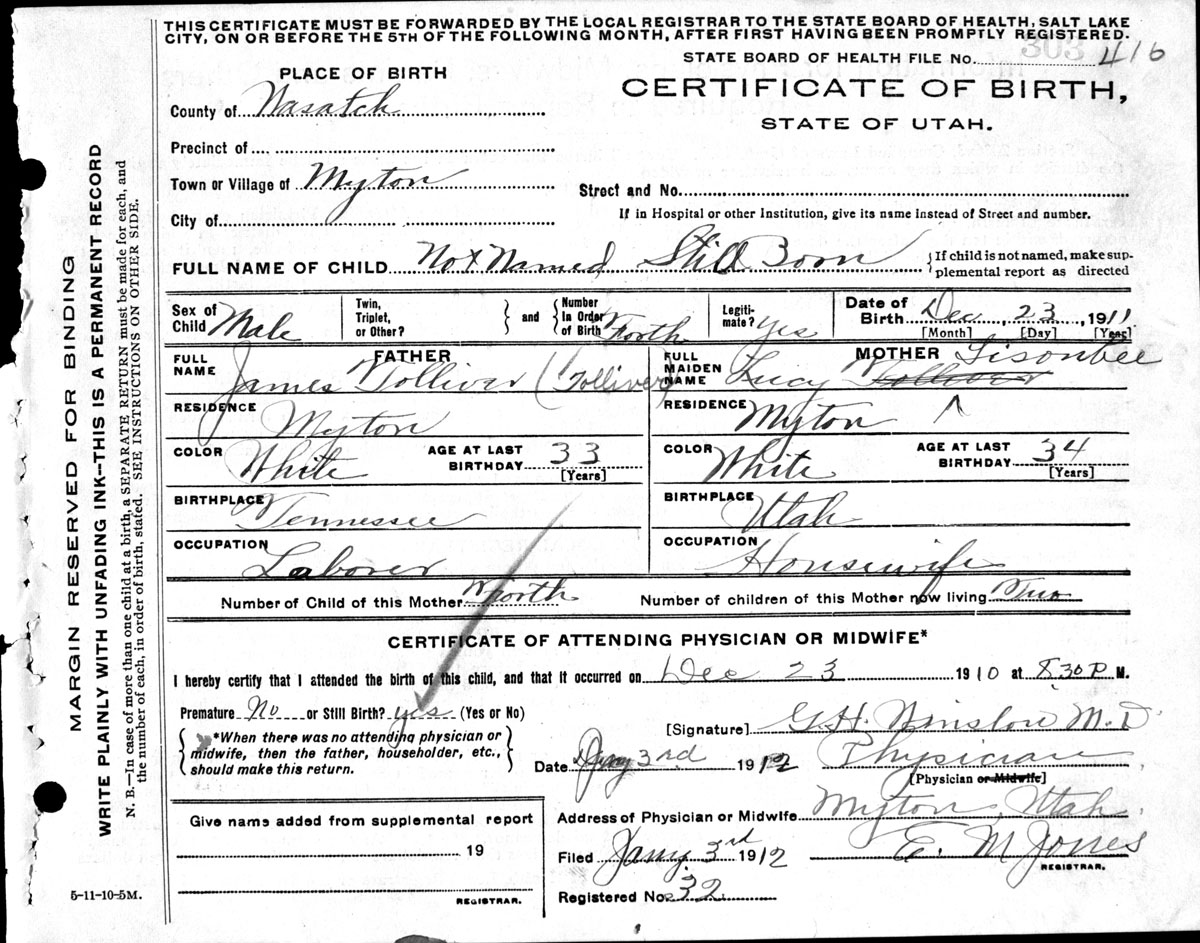 THIS CERTIFICATE MUST BE FORWARDED BY THE LOCAL REGISTRAR TO THE STATE BOARD OF HEALTH, SALT LAKE
CITY, ON OR BEFORE THE 5TH OF THE FOLLOWING MONTH, AFTER FIRST HAVING BEEN PROMPTLY REGISTERED.
STATE BOARD OF HEALTH FILE No. 416
PLACE OF BIRTH
CERTIFICATE OF BIRTH,
STATE OF UTAH.
County of Wasatch
Precinct of
Town or Village of Myton
Street and No.
City of
If in Hospital or other Institution, give its name instead of Street and number.
FULL NAME OF CHILD Not Named Still Born
If child is not named, make sup-
plemental report as directed
Sex of Child Male
Twin, Triplet, or Other?
and
Number In Order of Birth Forth
Legiti-mate? yes
Date of Birth Dec 23, 1911
[Month] [Day] [Year]
FATHER
FULL NAME James Tolliver (Tolliver)
MOTHER
FULL MAIDEN NAME Lucy Tolliver Sisonbee
RESIDENCE Myton
RESIDENCE Myton
COLOR White AGE AT LAST BIRTHDAY 33 [Years]
COLOR White AGE AT LAST BIRTHDAY 34 [Years]
BIRTHPLACE Tennessee
BIRTHPLACE Utah
OCCUPATION Laborer
OCCUPATION Housewife
Number of Child of this Mother Forth
Number of children of this Mother now living Two
CERTIFICATE OF ATTENDING PHYSICIAN OR MIDWIFE*
I hereby certify that I attended the birth of this child, and that it occurred on Dec 23 1910 at 8.30 P. M.
Premature No or Still Birth? yes (Yes or No)
*When there was no attending physician or
midwife, then the father, householder, etc.,
should make this return.
[Signature] G.H. Winslow M.D.
Date Jany 3rd 1912 Physician
[Physician or Midwife]
Give name added from supplemental report
19
REGISTRAR.
Address of Physician or Midwife Myton, Utah.
Filed Jany. 3rd 1912 E. M Jones
REGISTRAR.
Registered No. 32
5-11-10-5M.
MARGIN RESERVED FOR BINDING
WRITE PLAINLY WITH UNFADING INK--THIS IS A PERMANENT RECORD
N. B.—In case of more than one child at a birth, a SEPARATE RETURN must be made for each, and
the number of each, in order of birth, stated. SEE INSTRUCTIONS ON OTHER SIDE.